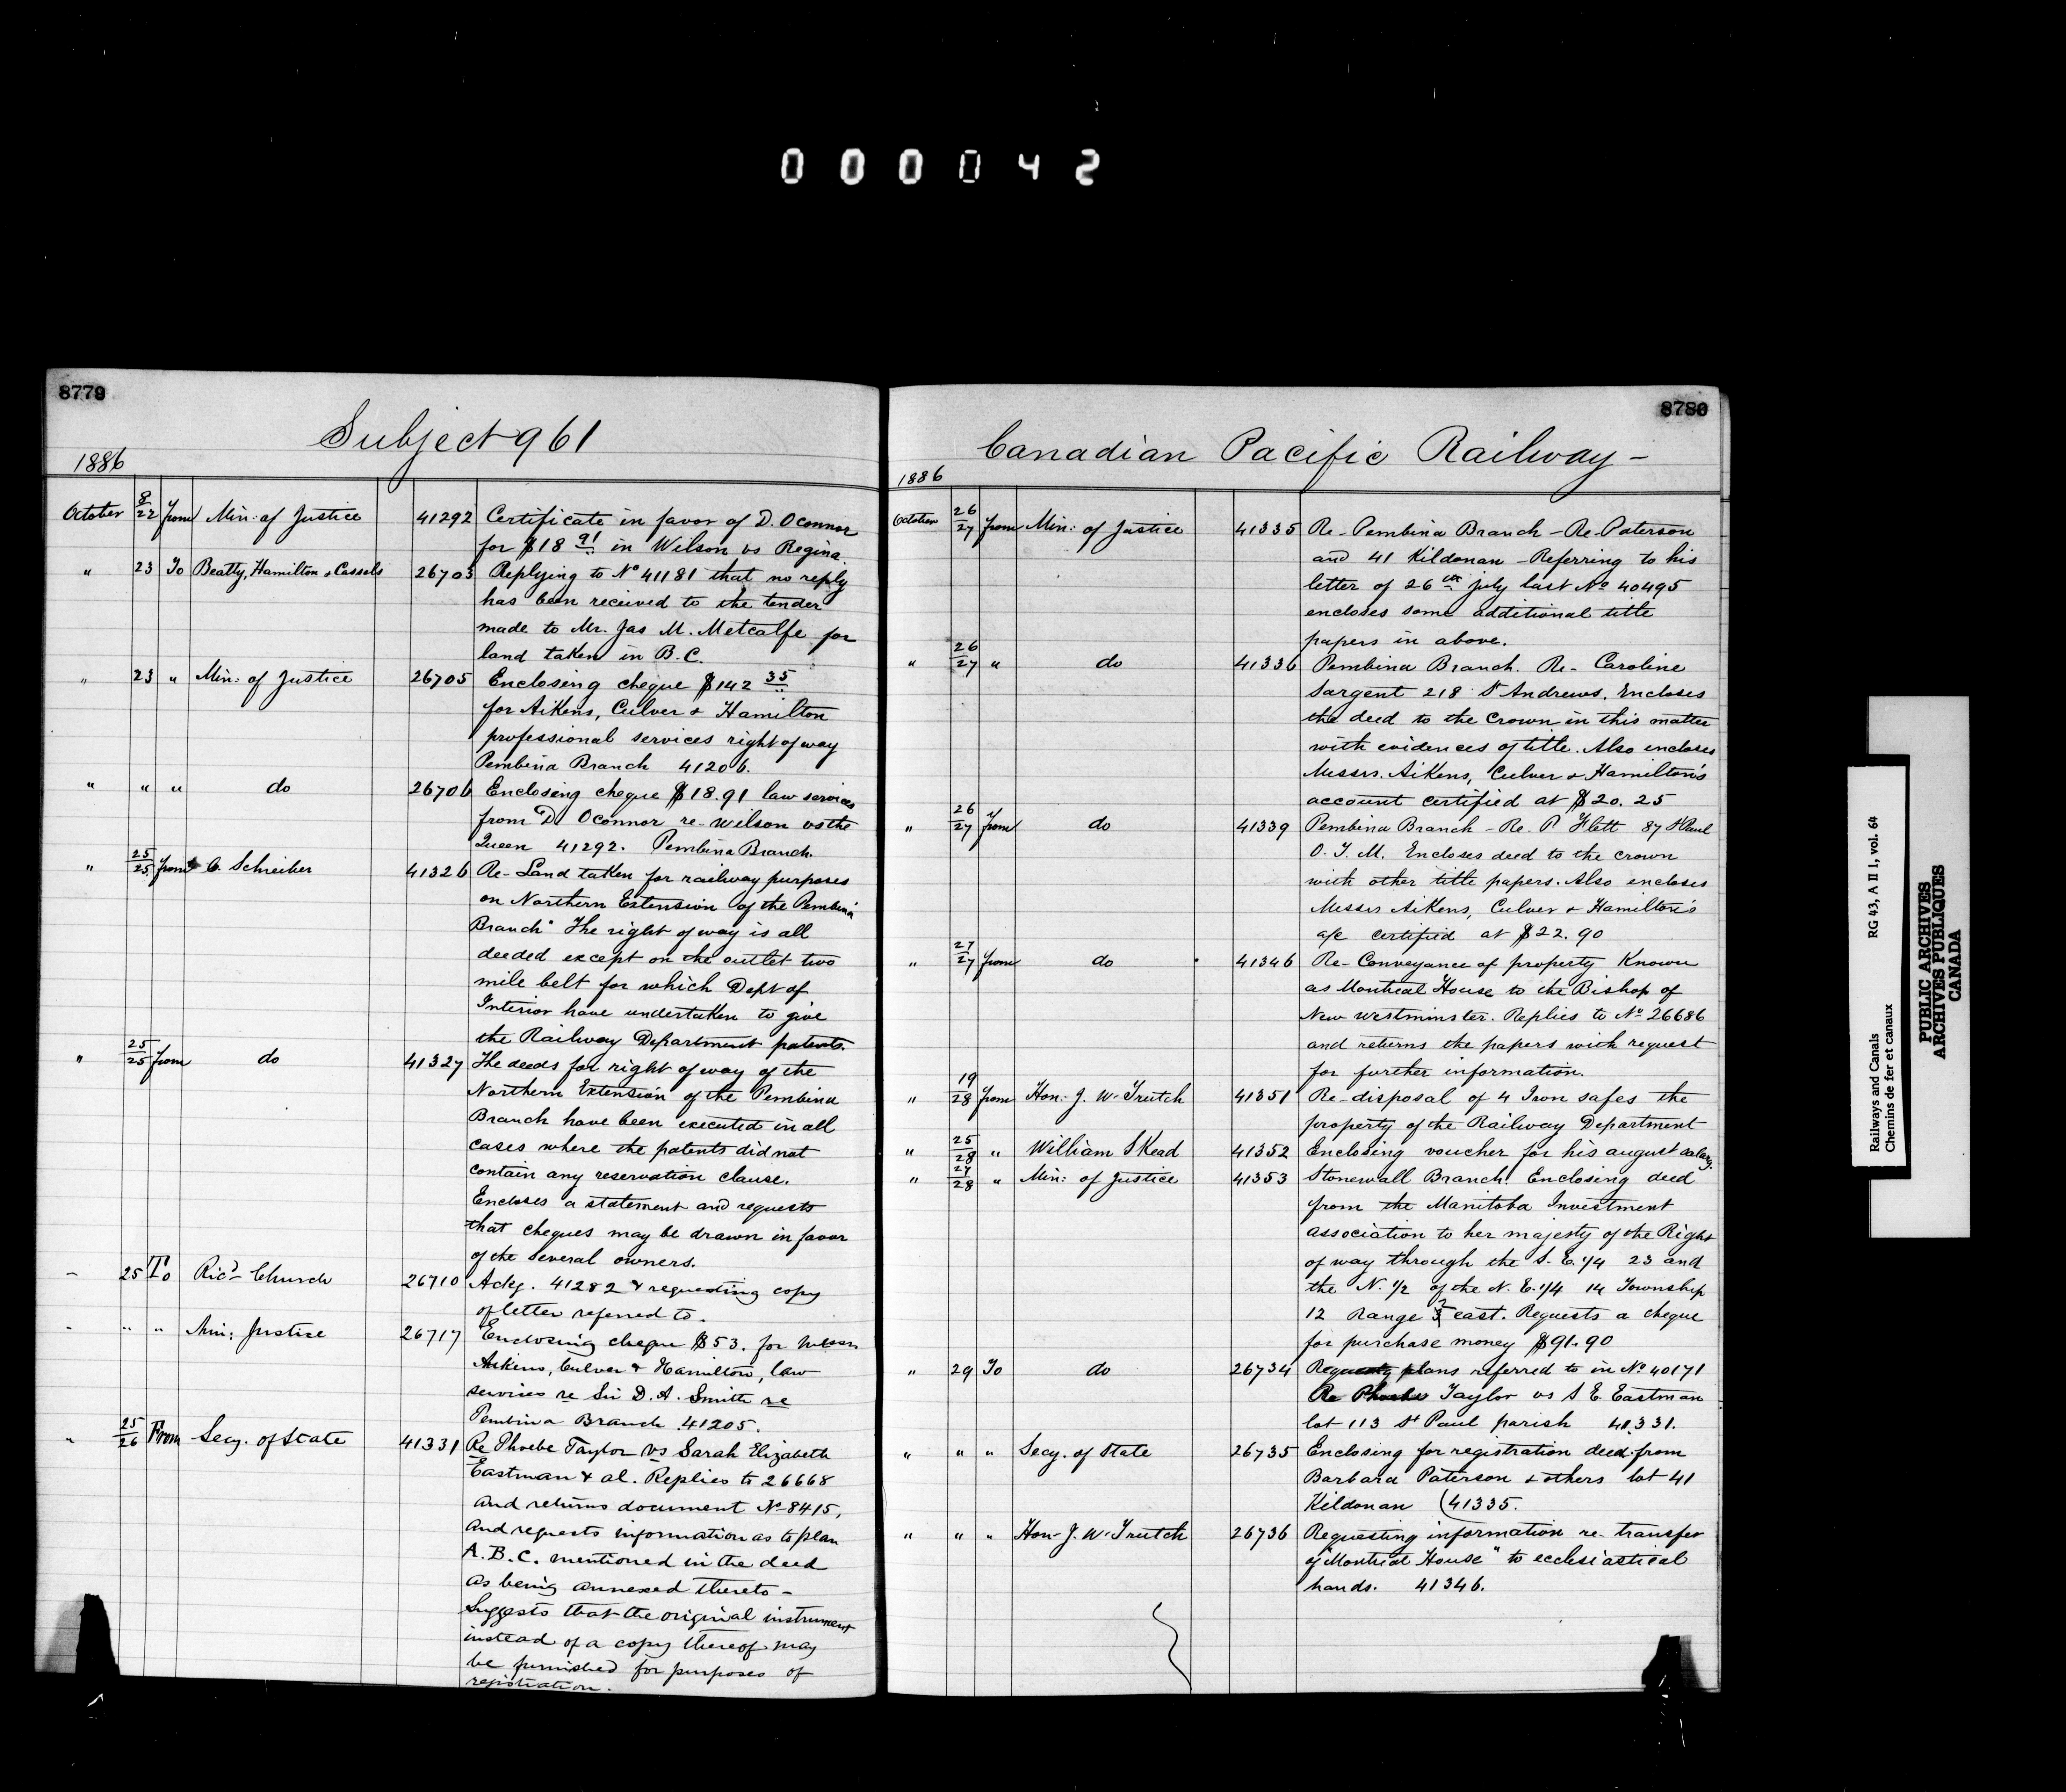 000042
8779
Subject 961
1886
October 8/22 from Min: of Justice 41292 Certificate in favor of D. OConnor
for $18 91 in Wilson vs Regina.
" 23 To Beatty, Hamilton & Cassels 26703 Replying to No 41181 that no reply
has been received to the tender
made to Mr. Jas M. Metcalfe for
land taken in B.C.
" 23 " Min: of Justice 26705 Enclosing cheque $142 35
for Aikens, Culver & Hamilton
professional services right of way
Pembina Branch 41206.
" " " do 26706 Enclosing cheque $18.91 law services
from D. OConnor re- Wilson vs the
Queen 41292. Pembina Branch.
" 25/25 from C. Schreiber 41326 Re- Land taken for railway purposes
on Northern Extension of the Pembina
Branch" The right of way is all
deeded except on the outlet two
mile belt for which Dept of
Interior have undertaken to give
the Railway Department patents.
" 25/25 from do 41327 The deeds for right of way of the
Northern Extension of the Pembina
Branch have been executed in all
cases where the patents did not
contain any reservation clause.
Encloses a statement and requests
that cheques may be drawn in favor
of the several owners.
- 25 To Ricd Church 26710 Ackg. 41282 & requesting copy
of letter referred to.
" " " Min: Justice 26717 Enclosing cheque $53. for Messrs
Aikins, Culver & Hamilton, law
services re Sir D. A. Smith re
Pembina Branch 41205.
" 25/26 From Secy. of State 41331 Re Phoebe Taylor vs Sarah Elizabeth
Eastman & al. Replies to 26668
and returns document No 8415,
and requests information as to plan
A.B.C. mentioned in the deed
as being annexed thereto -
Suggests that the original instrument
instead of a copy thereof may
be furnished for purposes of
registration.
8780
Canadian Pacific Railway -
1886
October 26/27 from Min: of Justice 41335 Re- Pembina Branch - Re- Paterson
and 41 Kildonan - Referring to his
letter of 26th July last No 40495
encloses some additional title
papers in above.
" 26/27 " do 41336 Pembina Branch. Re- Caroline
Sargent 218 St Andrews. Encloses
the deed to the Crown in this matter
with evidences of title. Also encloses
Messrs. Aikens, Culver & Hamilton's
account certified at $20.25
" 26/27 from do 41339 Pembina Branch - Re. P. Flett 87 St Paul
O. T. M. Encloses deed to the crown
with other title papers. Also encloses
Messrs Aikens, Culver & Hamilton's
a/c certified at $22.90
" 27/27 from do 41346 Re- Conveyance of property Known
as Montreal House to the Bishop of
New Westminster. Replies to No 26686
and returns the papers with request
for further information.
" 19/28 from Hon: J. W. Trutch 41351 Re- disposal of 4 Iron safes the
property of the Railway Department
" 25/28 " William SKead 41352 Enclosing voucher for his august salary.
" 27/28 " Min: of Justice 41353 Stonewall Branch. Enclosing deed
from the Manitoba Investment
association to her majesty of the Right
of way through the S. E. 1/4 23 and
the N. 1/2 of the N. E. 1/4 14 Township
12 Range 2 east. Requests a cheque
for purchase money $91.90
" 29 To do 26734 Requests plans referred to in No 40171
Re Phoebe Taylor vs S E. Eastman
lot 113 St Paul parish 41331.
" " " Secy. of State 26735 Enclosing for registration deed from
Barbara Paterson & others lot 41
Kildonan (41335.
" " " Hon- J. W. Trutch 26736 Requesting information re- transfer
of Montreal House" to ecclesiastical
hands. 41346.
Railways and Canals RG 43, A II 1, vol. 64
Chemins de fer et canaux
PUBLIC ARCHIVES
ARCHIVES PUBLIQUES
CANADA